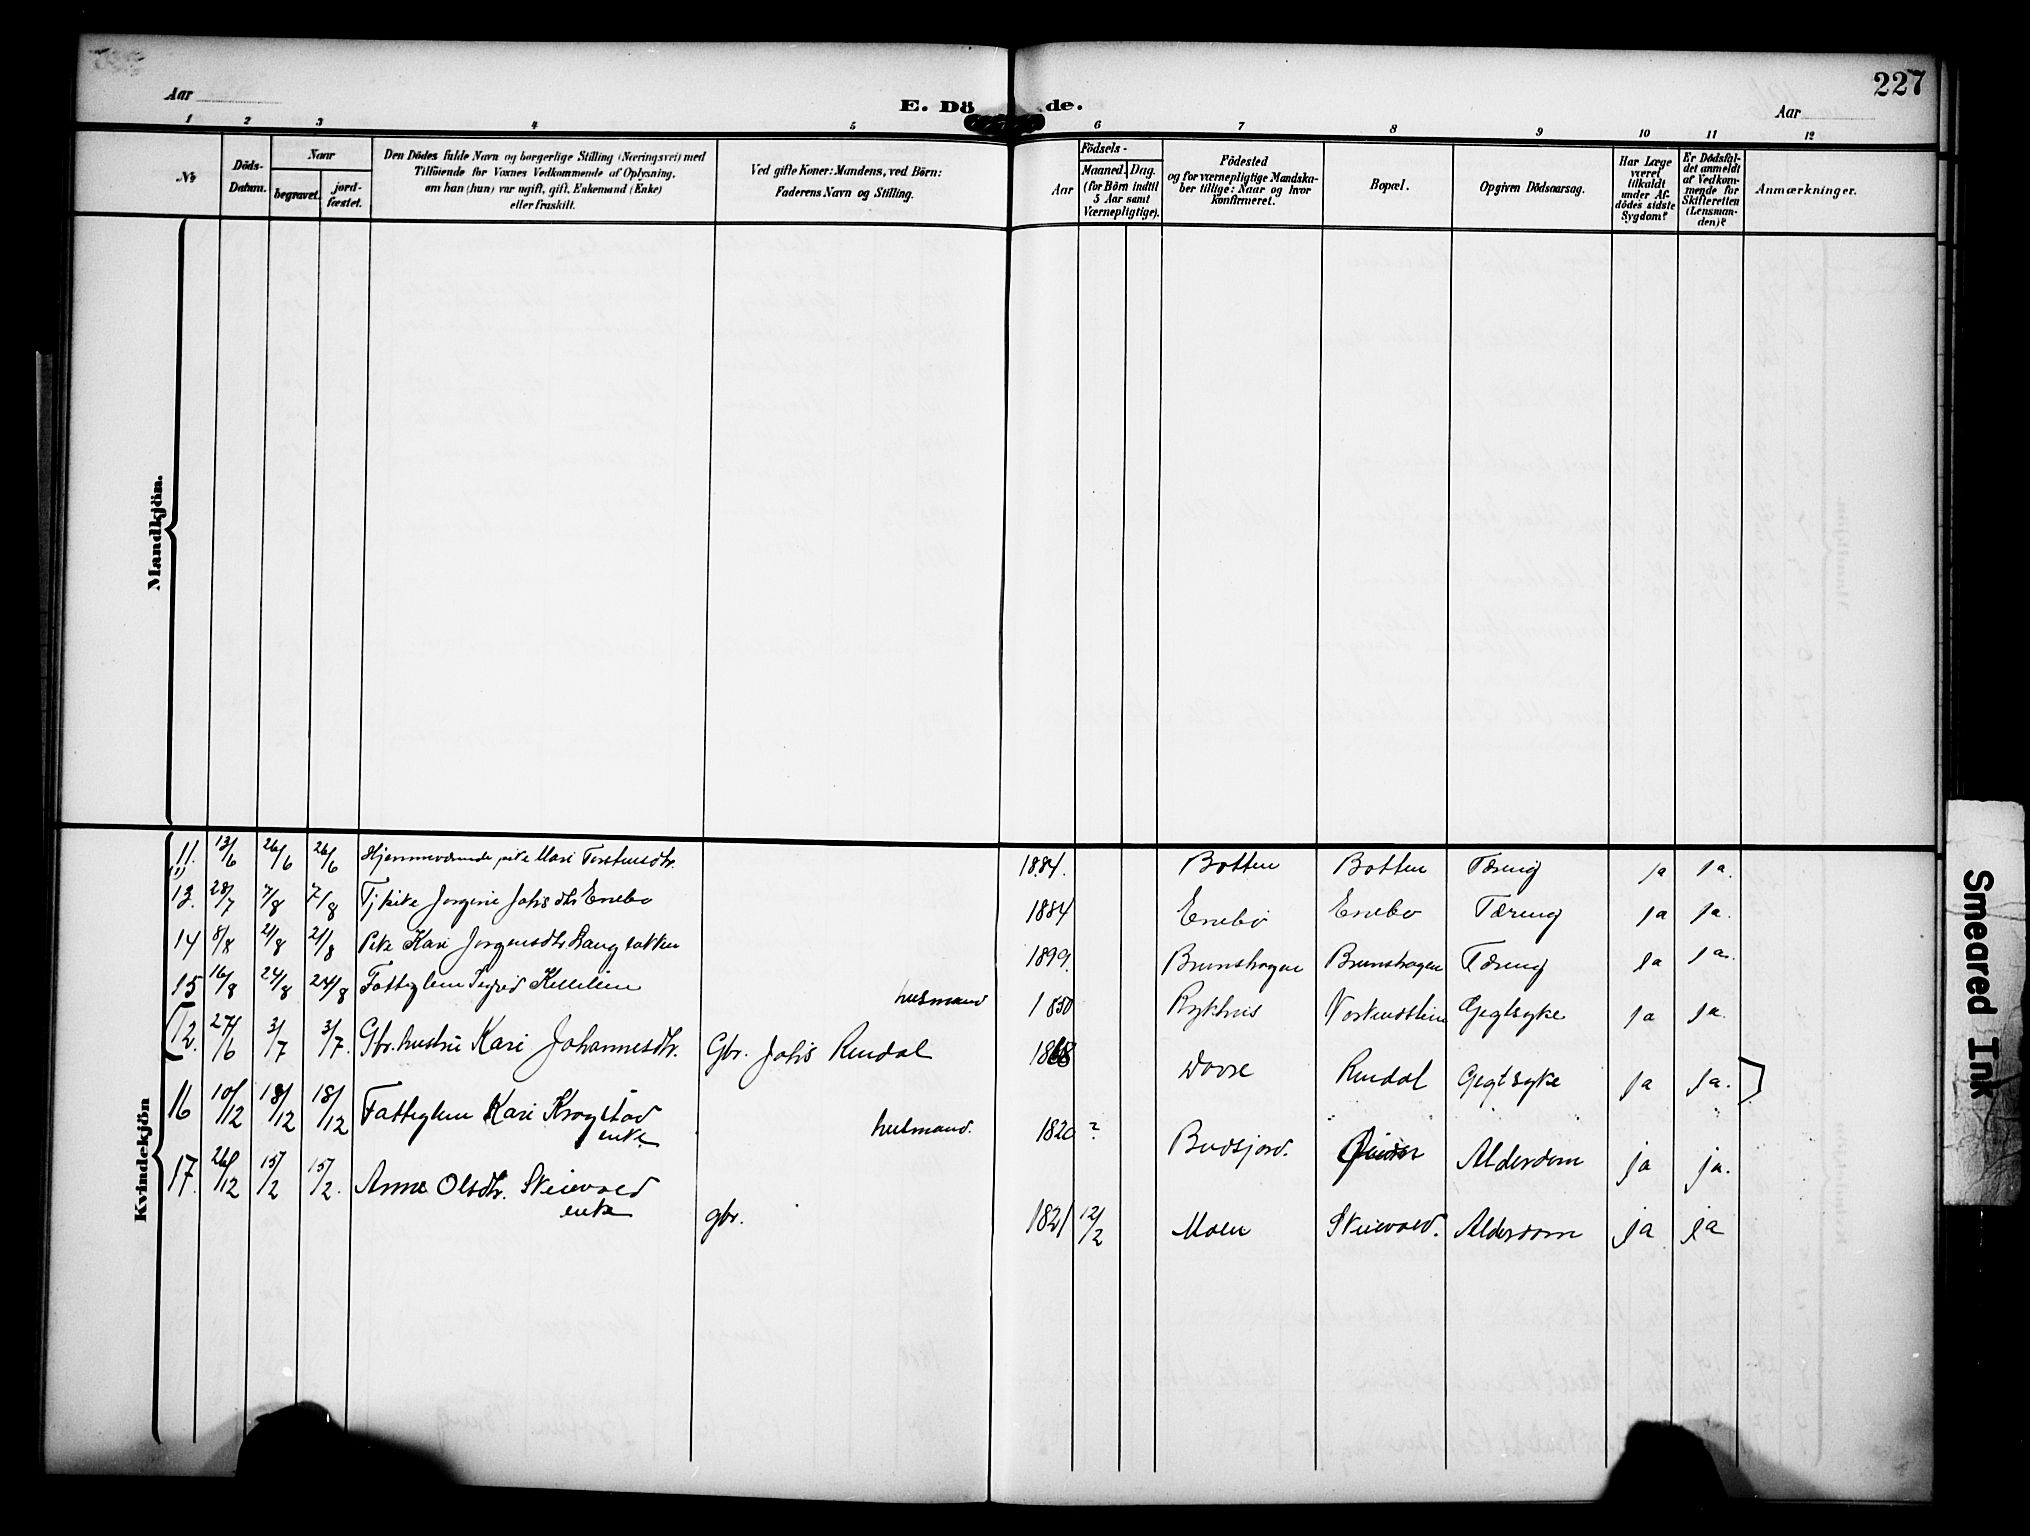 227
Aar
E. Dö de.
Aar
1 2 3 4 5 6 7 8 9 10 11 12
№
Döds-
Datum.
Naar
begravet.
jord-
fæstet.
Den Dödes fulde Navn og borgerlige Stilling (Næringsvei) med
Tilföiende for Voxnes Vedkommende af Oplysning,
om han (hun) var ugift, gift, Enkemand (Enke)
eller fraskilt.
Ved gifte Koner: Mandens, ved Börn:
Faderens Navn og Stilling.
Födsels-
Aar
Maaned. Dag.
(for Börn indtil
5 Aar samt
Værnepligtige).
Födested
og for værnepligtige Mandska-
ber tillige: Naar og hvor
konfirmeret.
Bopæl.
Opgiven Dödsaarsag.
Har Læge
været
tilkaldt
under Af-
dödes sidste
Sygdom?
Er Dödsfal-
det anmeldt
af Vedkom-
mende for
Skifteretten
(Lensman-
den)?
Anmærkninger.
Mandkjön.
Kvindekjön
11. 13/6 26/6 26/6 Hjemmeværende pike Mari Torstensdtr. 1884. Botten Botten Tæring ja ja.
13. 28/7 7/8 7/8 Tj pike Jorgine Johs dtr Enebo 1884 Enebo Enebo Tæring ja ja.
14 8/8 21/8 21/8 Pike Kari Jorgensdtr 1899. Brunshagen Brunshagen Tæring ja ja.
15 16/8 24/8 24/8 Fattiglem Sigrid husmand 1850 Gigtsyke ja ja.
12. 27/6 3/7 3/7. Gbr. hustru Kari Johannesdtr. Gbr. Johs Rendal 1868 Dovre Rendal Gigtsyke ja ja.
16 10/12 18/12 18/12 Fattiglem Kari Krogstad
enke husmand. 1820 ? Budsjord. Alderdom ja ja.
17. 26/12 15/2 15/2. Anne Olsdtr. Skievold
enke gbr. 1821 12/2 Moen Skievold. Alderdom ja ja
Smeared Ink